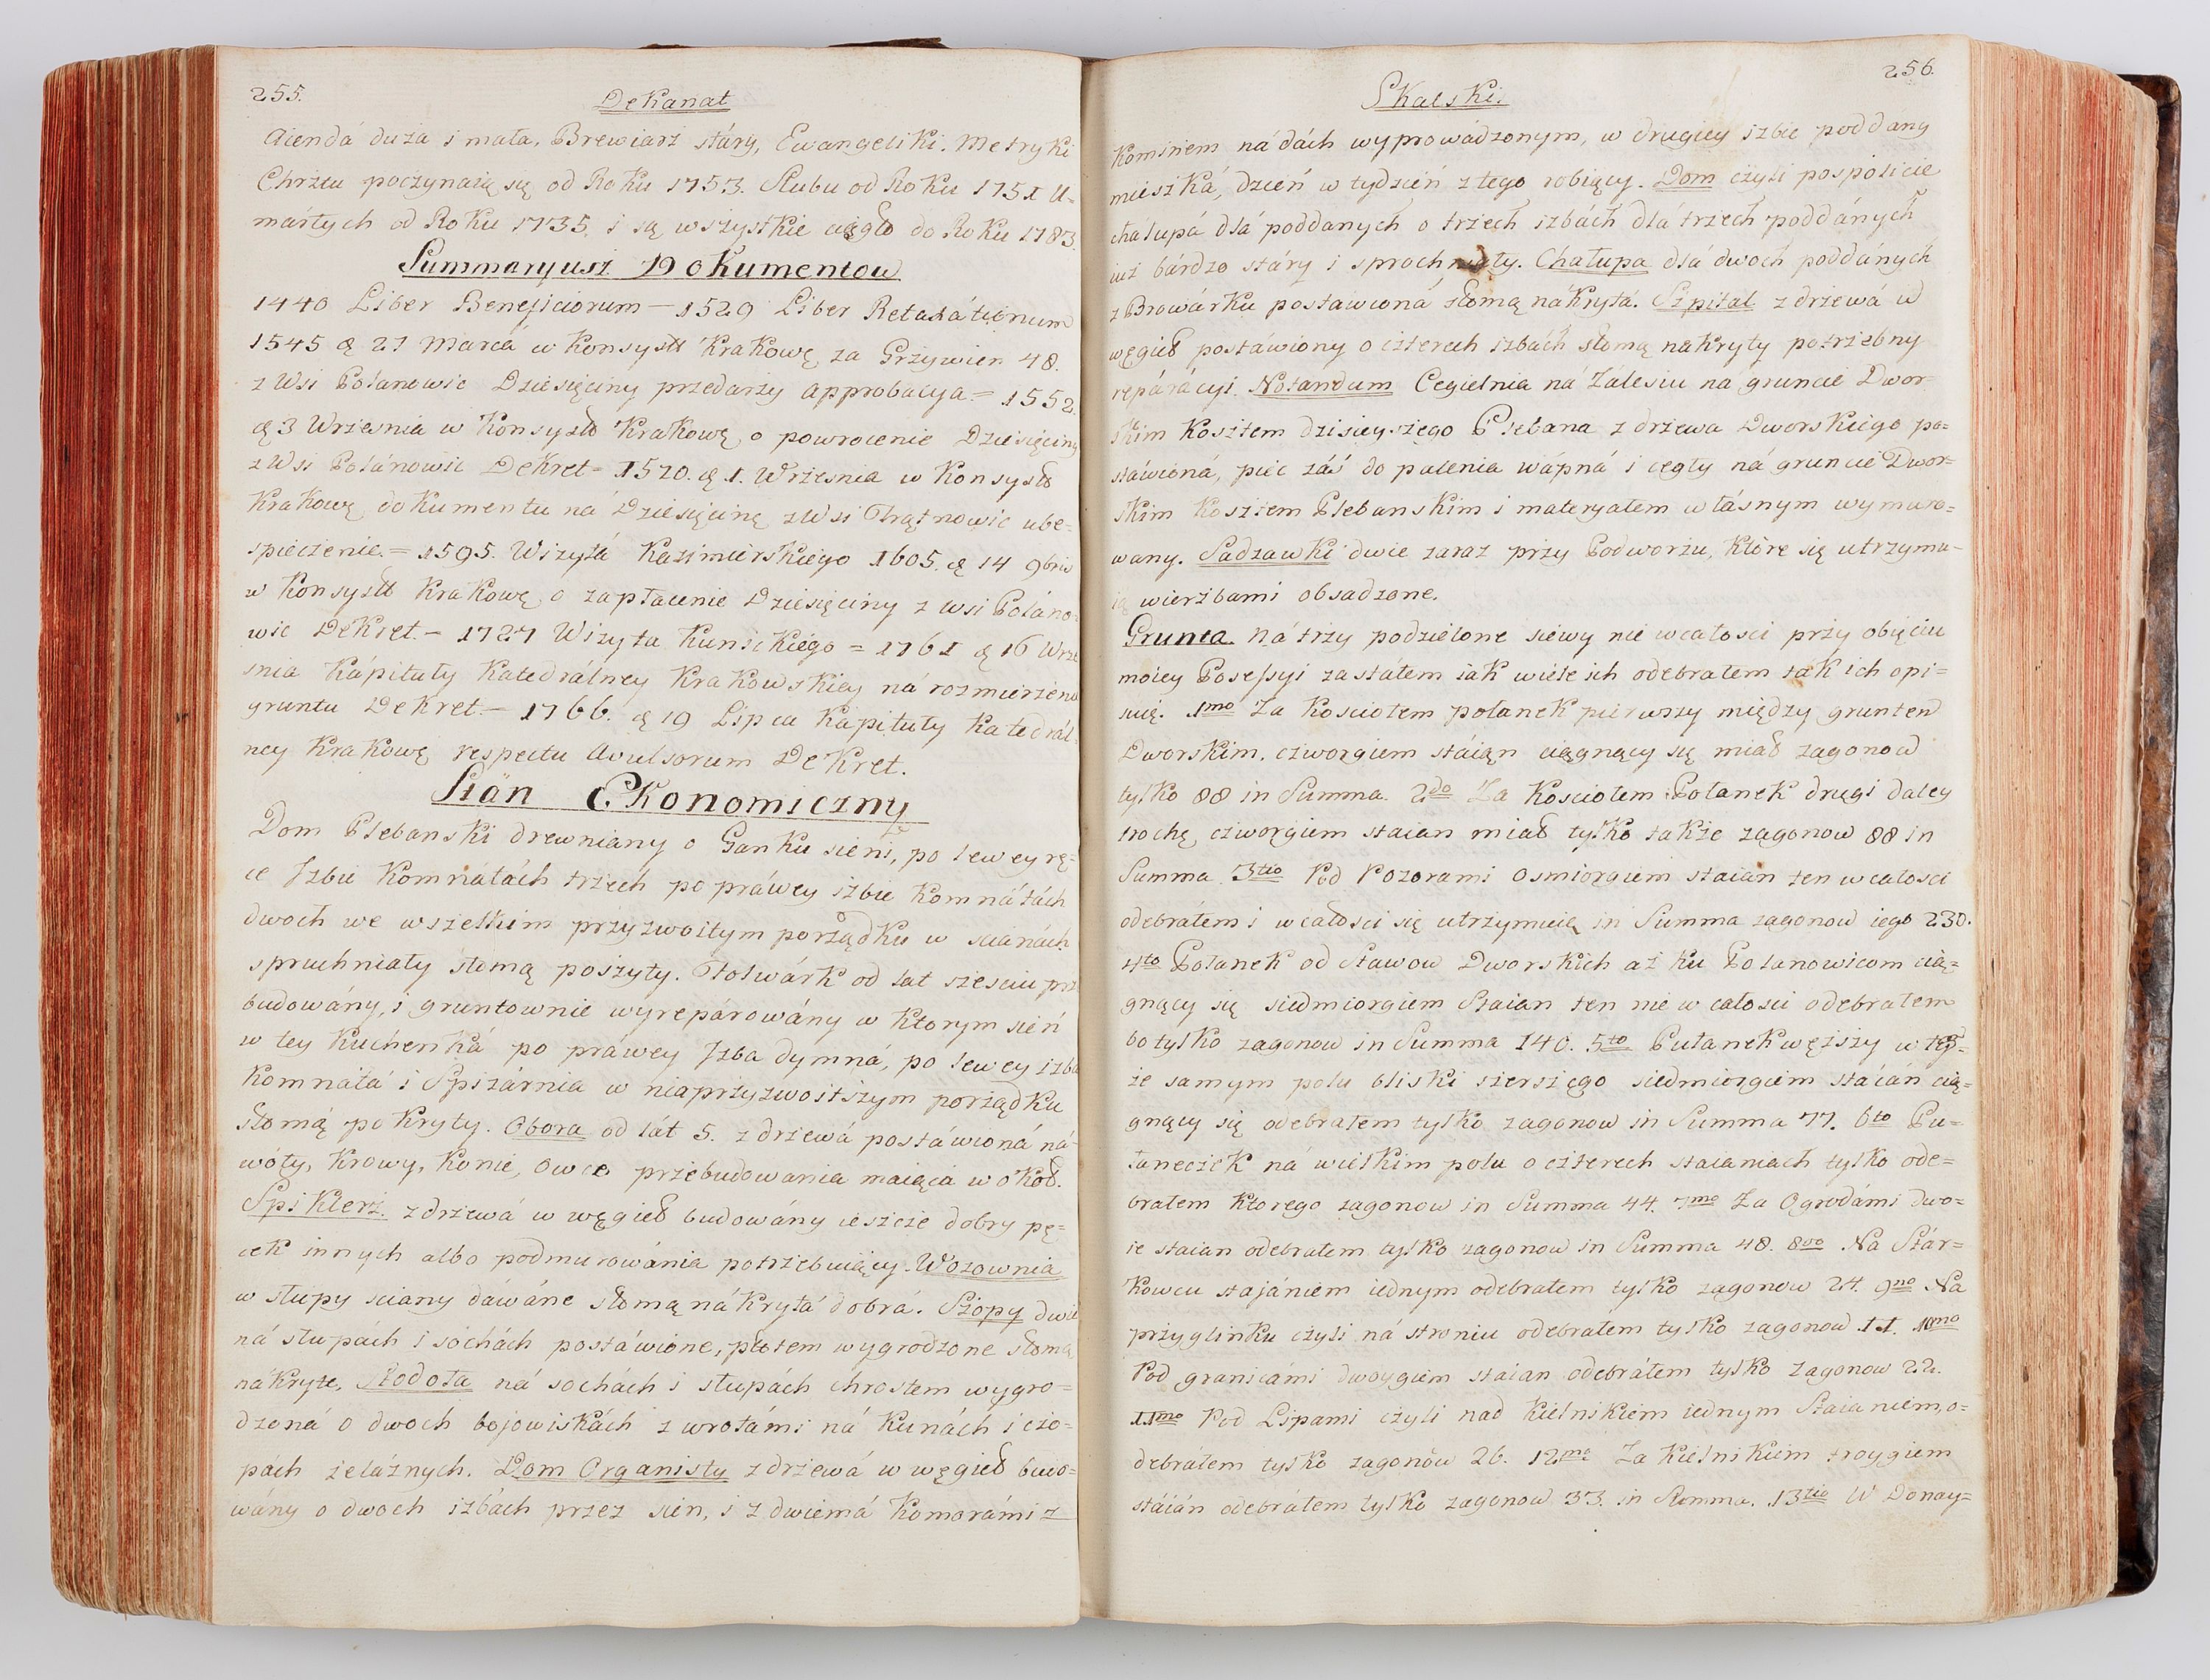 255.
Dekanat
Aienda duża i mała, Brewiarz stáry, Ewangeliki. Metryki
Chrztu poczynaią się od Roku 1753. Slubu od Roku 1751 U=
marłych od Roku 1735. i są wszystkie ciągło do Roku 1783.
Summaryusz Dokumentow
1440 Liber Beneficiorum — 1529 Liber Retaxátionum
1545 ą 27 Marca w Konsystł Krakowę za Grzywien 48.
z Wsi Polanowic Dziesięciny przedarzy approbacya = 1552.
ą 3 Wrzesnia w Konsystł Krakowę o powrocenie Dziesięciny
z Wsi Polánowic Dekret = 1570. ą 1. Wrzesnia w Konsystł
Krakowę dokumentu ná Dziesięcinę z Wsi Trątnowic ube=
spieczenie. = 1595. Wizytá Kazimierskiego 1605. ą 14 9bris
w Konsystł Krakowę o zapłacenie Dziesięciny z wsi Poláno=
wic Dekret. – 1727 Wizyta Kunickiego = 1761 ą 16 Wrze
snia Kápituły Katedrálney Krakowskiey ná rozmierzenie
gruntu Dekret. – 1766. ą 19 Lipca Kápituły Katedrál=
ney Krakowę respectu Avulsorum Dekret.
Stan Ekonomiczny
Dom Plebanski drewniany o Ganku sieni, po lewey rę=
ce Izbie Komnátách trzech po práwey izbie Komnátách
dwoch we wszelkim przyzwoitym porządku w scianách
spruchniały słomą poszyty. Folwárk od lat szesciu prze
budowány, i gruntownie wyrepárowány w ktorym sień
w tey Kuchenká po práwey Izba dymná, po lewey izba
Komnatá i Spizárnia w niaprzyzwoitszym porządku
słomą pokryty. Obora od lát 5. z drzewá postáwioná ná
woły, Krowy, Konie, Owce przebudowania maiąca w okoł.
Spiklerz z drzewá w węgieł budowány ieszcze dobry pę=
cek innych albo podmurowánia potrzebuiący. Wozownia
w słupy sciany dáwáne słomą nákrytá dobrá. Szopy dwie
ná słupách i sochách postáwione, płotem wygrodzone słomą
nákryte, Stodoła ná sochách i słupách chrostem wygro=
dzoná o dwoch bojowiskách z wrotámi ná Kunách i czo=
pách żeláznych. Dom Organisty z drzewá w węgieł budo=
wány o dwoch izbách przez sien, i z dwiemá Komorámi z
256.
Skalski.
Kominem ná dách wyprowádzonym, w drugiey izbie poddany
mieszká, dzień w tydzień z tego robiący. Dom czyli pospolicie
chałupá dlá poddanych o trzech izbách dlá trzech poddánych
iuż bárdzo stáry i sprochniáły. Chałupa dlá dwoch poddánych
z Browárku postáwioná słomą nákrytá. Szpital z drzewá w
węgieł postáwiony o czterech izbách słomą nakryty potrzebny
repárácyi. Notandum Cegielnia ná Zálesiu ná gruncie Dwor=
skim Kosztem dzisieyszego Plebana z drzewa Dworskiego po=
stáwioná, piec záś do palenia wápná i cegły ná gruncie Dwor=
skim Kosztem Plebanskim i materyałem włásnym wymuro=
wany. Sadzawki dwie zaraz przy Podworzu, które się utrzymu=
ią wierzbami obsadzone.
Grunta ná trzy podzielone siewy nie wcałosci przy obięciu
moiey Posessyi zastałem iak wiele ich odebrałem tak ich opi=
suię. 1mo Za Kosciołem połanek pierwszy między gruntem
Dworskim, czworgiem stáiąn ciągnący się miał zagonow
tylko 88 in Summa. 2do Za Kosciołem Połanek drugi daley
trochę, czworgiem staian miał tylko także zagonow 88 in
Summa. 3tio Pod Pozorami Osmiorgiem staian ten wcałosci
odebrałem i w całosci się utrzymuie, in Summa zagonow iego 230.
4to Połanek od Stawow Dworskich aż ku Polanowicom cią=
gnący się siedmiorgiem Staian ten nie w całosci odebrałem
bo tylko zagonow in Summa 140. 5to Pułanek węższy w tey=
że samym polu bliski szerszego siedmiorgiem stáián cią=
gnący się odebrałem tylko zagonow in Summa 77. 6to Pu=
łaneczek ná wielkim polu o czterech staianiach tylko ode=
brałem ktorego zagonow in Summa 44. 7mo Za Ogrodámi dwo=
ie staian odebrałem tylko zagonow in Summa 48. 8vo Na Stár=
Kowcu stajániem iednym odebrałem tylko zagonow 24. 9no Na
przyglinku czyli ná stroniu odebrałem tylko zagonow 11. 10mo
Pod granicámi dwoygiem staian odebrałem tylko zagonow 22.
11mo Pod Lipami czyli nad Kielnikiem iednym Staianiem, o=
debrałem tylko zagonów 26. 12mo Za Kielnikiem troygiem
stáián odebráłem tylko zagonow 33. in Summa. 13tio W Donay=